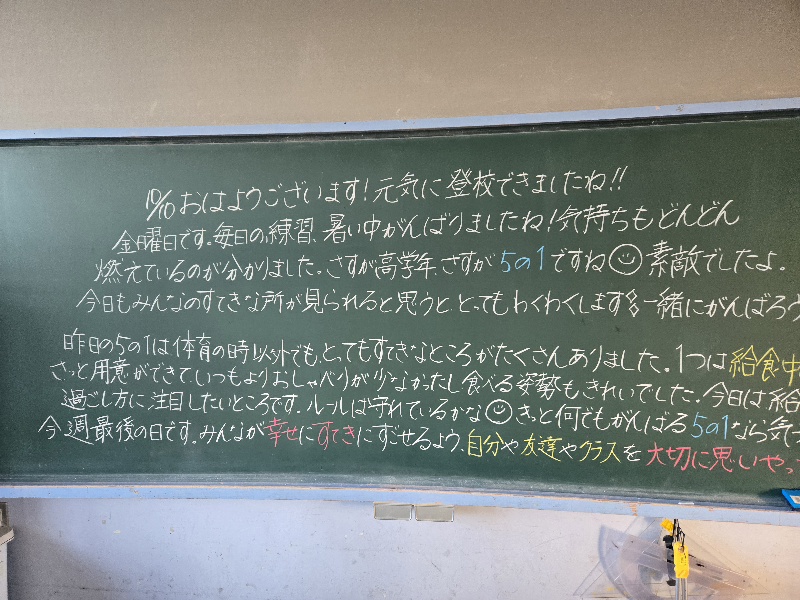 10/10 おはようございます!元気に登校できましたね!!
金曜日です。毎日の練習、暑い中がんばりましたね!気持ちもどんどん
燃えているのが分かりました。さすが高学年、さすが5の1ですね☺素敵でしたよ。
今日もみんなのすてきな所が見られると思うと、とってもわくわくします 一緒にがんばろう
昨日の5の1は体育の時以外でも、とってもすてきなところがたくさんありました。1つは給食中
さっと用意ができて、いつもよりおしゃべりが少なかったし食べる姿勢もきれいでした。今日は給
過ごし方に注目したいところです。ルールは守れているかな☺きっと何でもがんばる5の1なら気
今週最後の日です。みんなが幸せにすてきにすごせるよう、自分や友達やクラスを大切に思いやっ